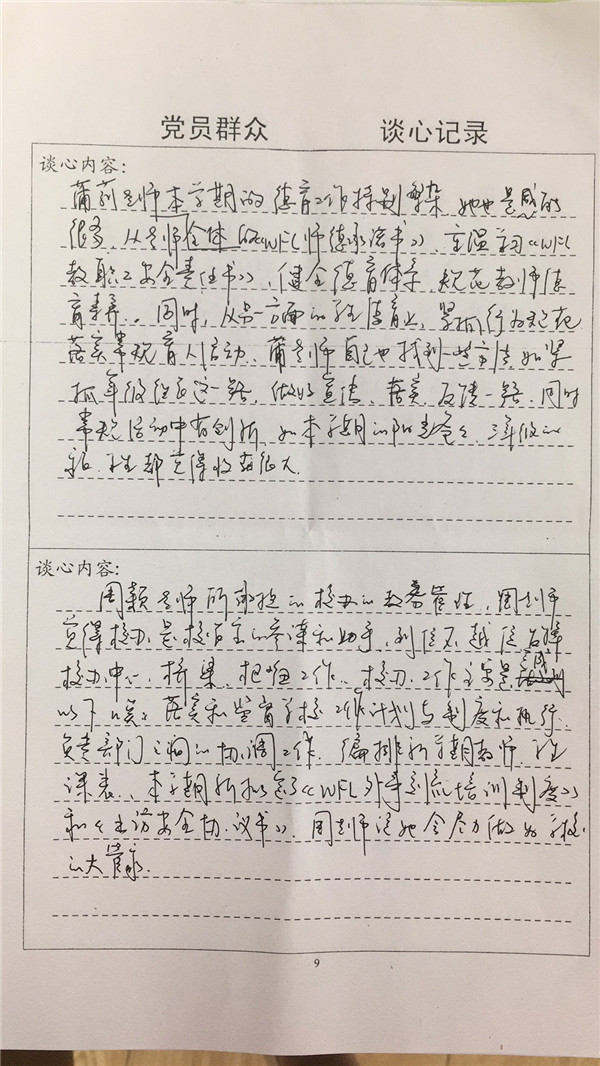 党员群众 谈心记录
谈心内容:
蒲药老师本学期的德育工作特别繁杂 她也是感的
很多, 从老师全体的《WFL师德承诺书》、《WFL
教职工安全责任书》, 健全德育体系, 规范教师德
育素养。同时, 从另一方面的学生德育上, 紧抓行为规范
落实常规育人活动、蒲老师自己也找到一些方法如紧
抓年级组长这一路, 做好宣传、落实反馈一路, 同时
常规活动中有创新, 如本学期的 爸爸, 三年级的
学生都觉得收获很大.
谈心内容:
周颖老师所承担的校办的教务管理, 周老师
觉得校办是校百主的参谋和助手, 到位不越位
校办中心、桥梁、把 工作、校办工作主要是完成
以下 落实和监督学校工作计划与制度和执行.
负责部门之间的协调工作, 编排新学期教师、学生
课表、本学期新拟定了《WFL外事 培训制度》
和《 访安全协议书》. 周老师说她会尽力做好学校
的大管家.
9